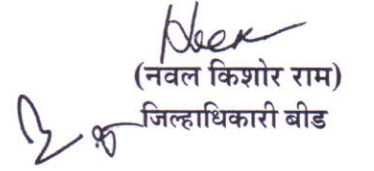 (नवल किशोर राम)
जिल्हाधिकारी बीड